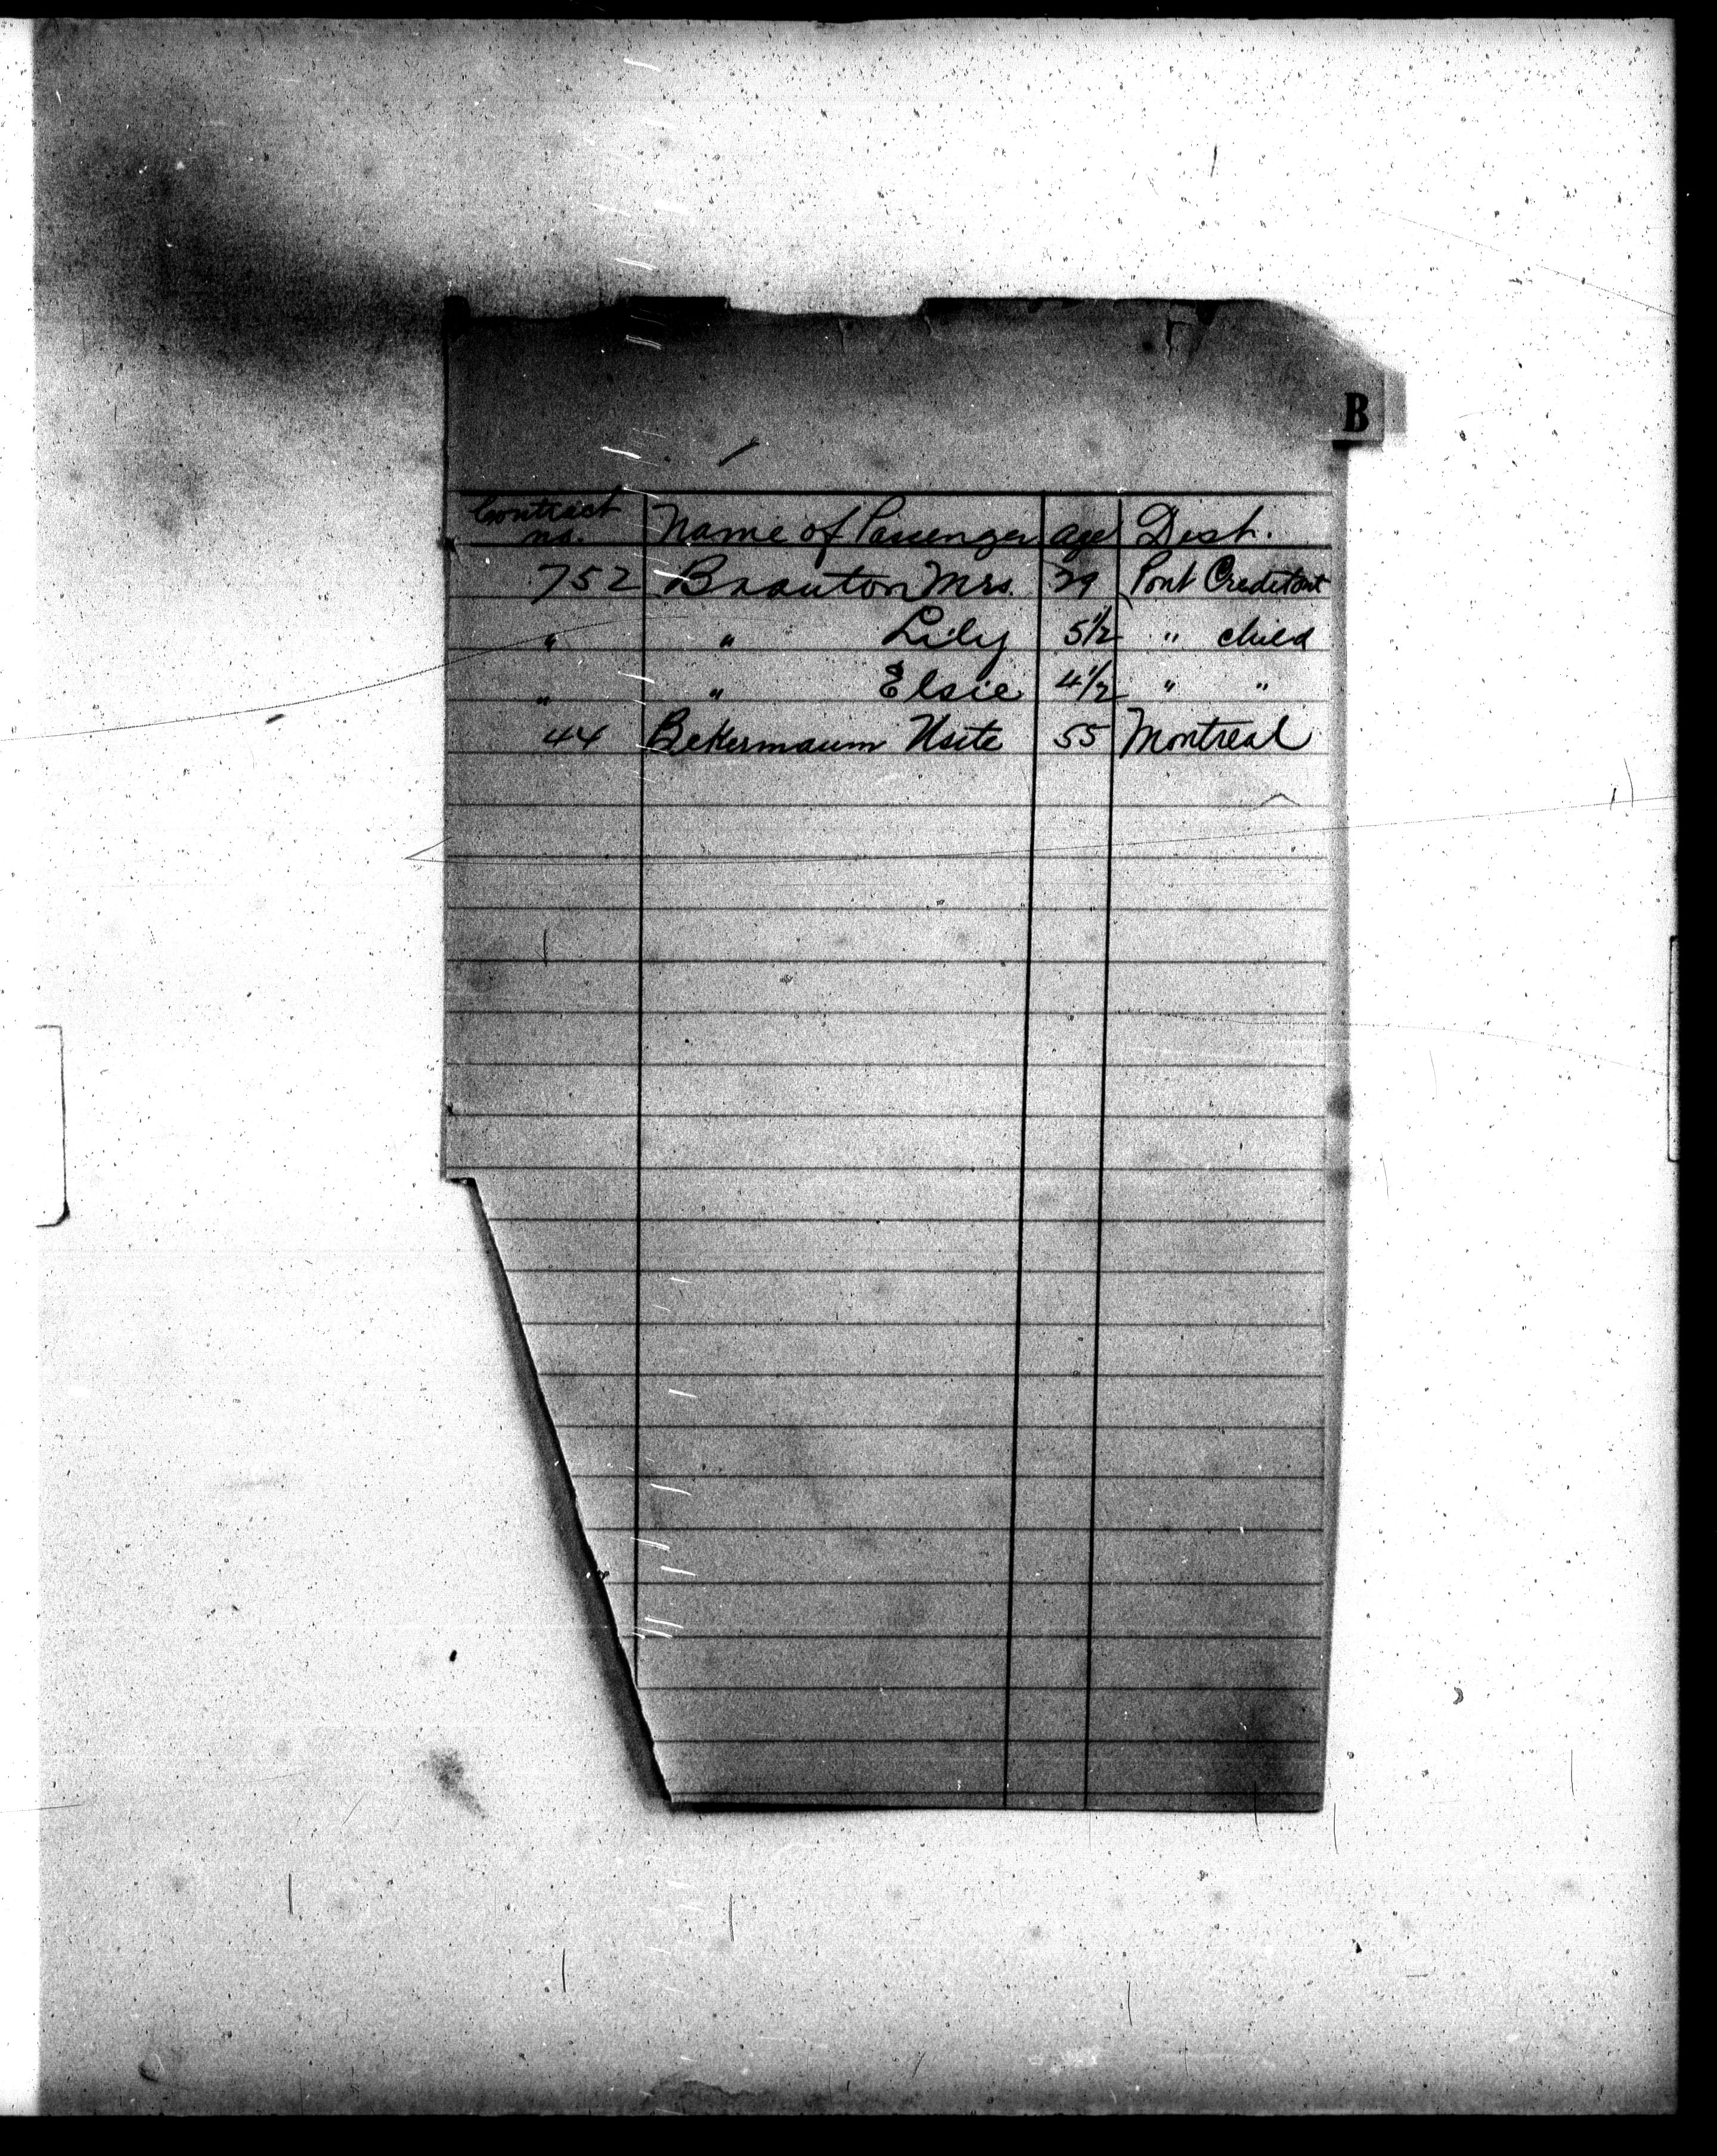 B
Contract no. Name of Passenger age Dest.
752 Braunton Mrs. 29 Port Credit Ont
" " Lily 5½ " child
" " Elsie 4½ " "
44 Bekermaum Usite 55 Montreal